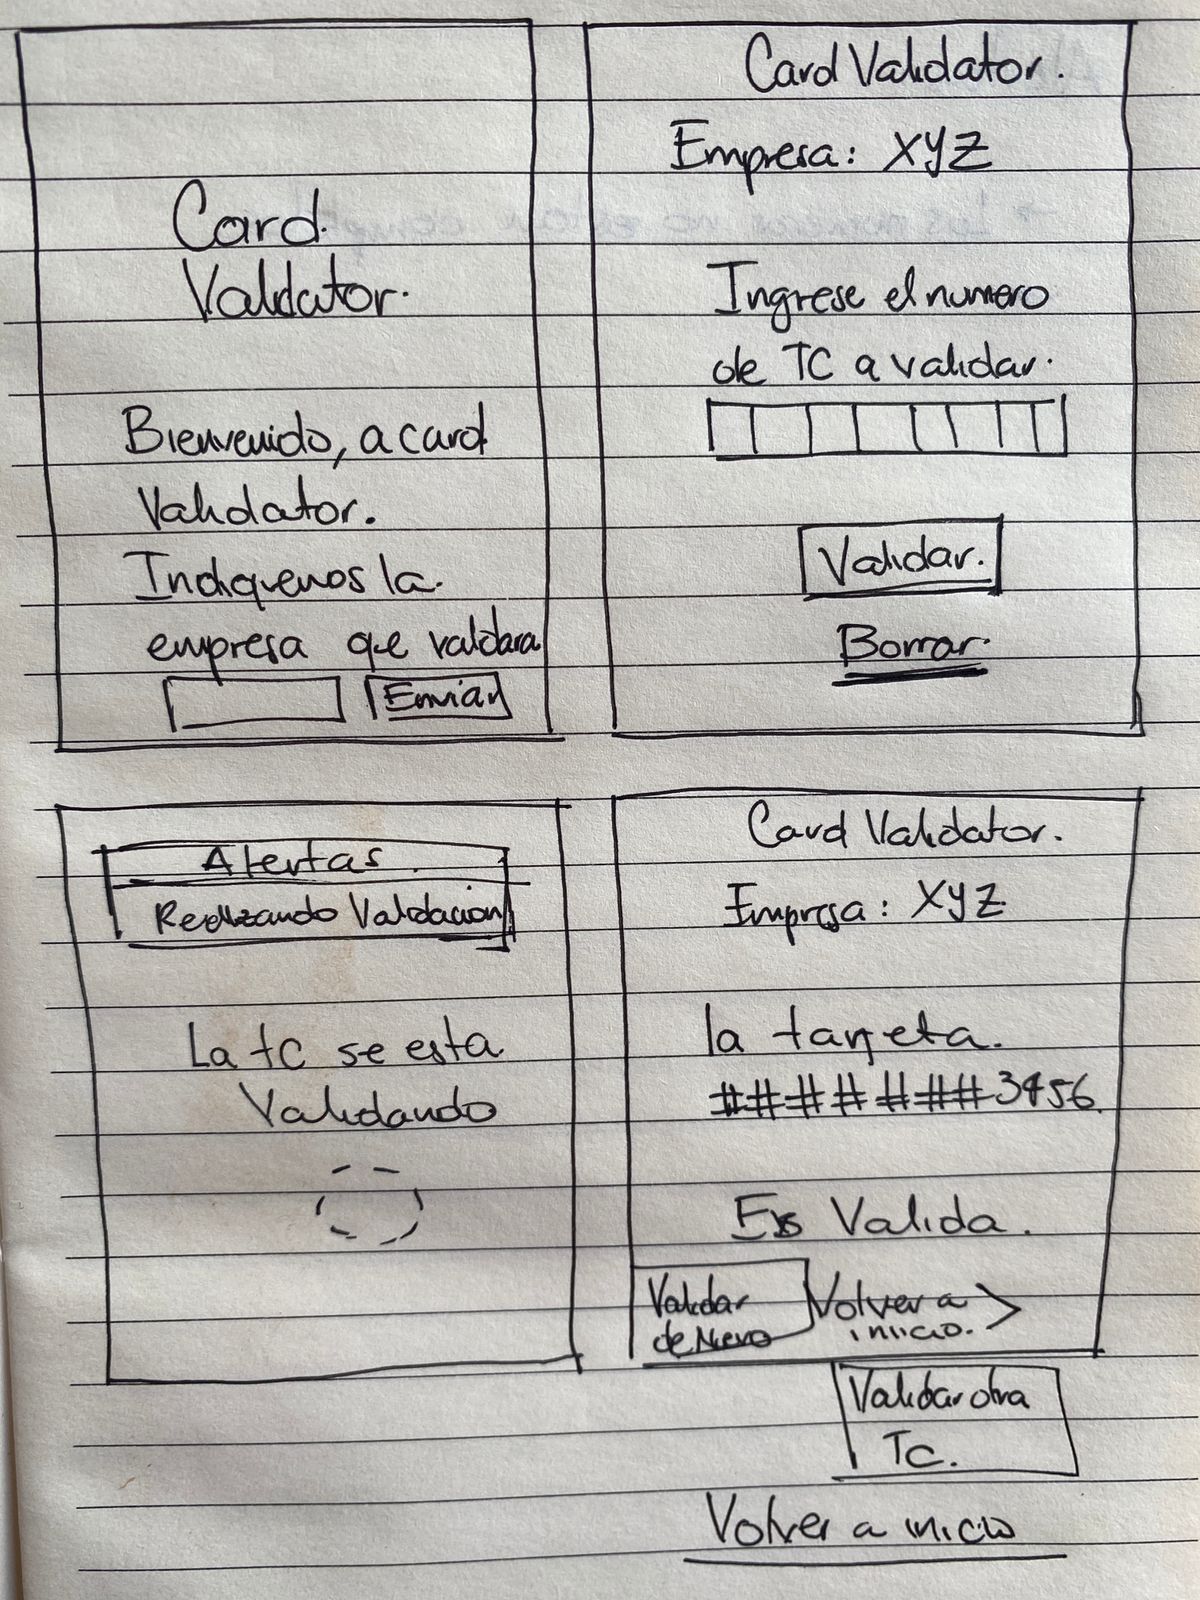 Card
Validator.
Bienvenido, a card
Validator.
Indiquenos la
empresa que validara
Enviar
Card Validator.
Empresa: XYZ
Ingrese el numero
de TC a validar.
Validar.
Borrar.
Alertas.
Realizando Validacion
La tc se esta
Validando
Card Validator.
Empresa: XYZ
la tarjeta.
########3456.
Es Valida.
Validar
de Nuevo
Volver a >
inicio.
Validar otra
TC.
Volver a inicio